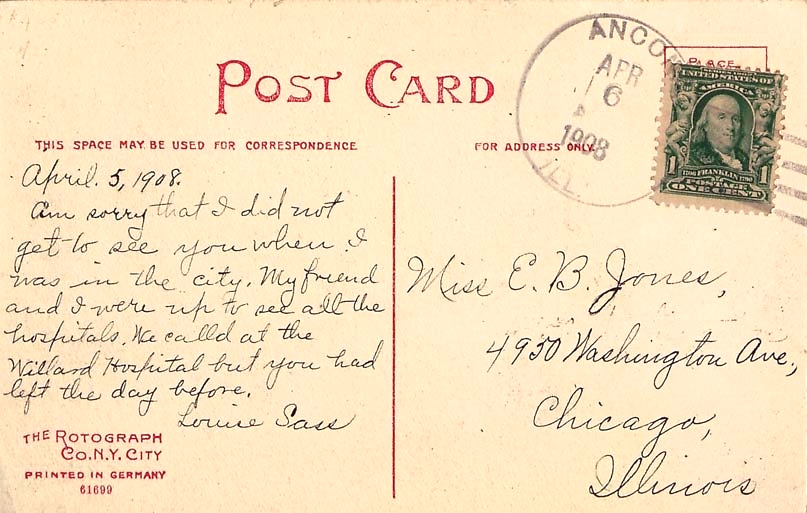 POST CARD
THIS SPACE MAY BE USED FOR CORRESPONDENCE
FOR ADDRESS ONLY.
PLACE
ANCO
APR
6
1908
ILL.
UNITED STATES OF
AMERICA
1
1706 FRANKLIN 1790
POSTAGE
ONE CENT
1
April. 5, 1908.
Am sorry that I did not
get to see you when I
was in the city. My friend
and I were up to see all the
hospitals. We calld at the
Willard Hospital but you had
left the day before.
Louise Sass
Miss E. B. Jones,
4950 Washington Ave.,
Chicago,
Illinois
THE ROTOGRAPH
CO. N.Y. CITY
PRINTED IN GERMANY
61699